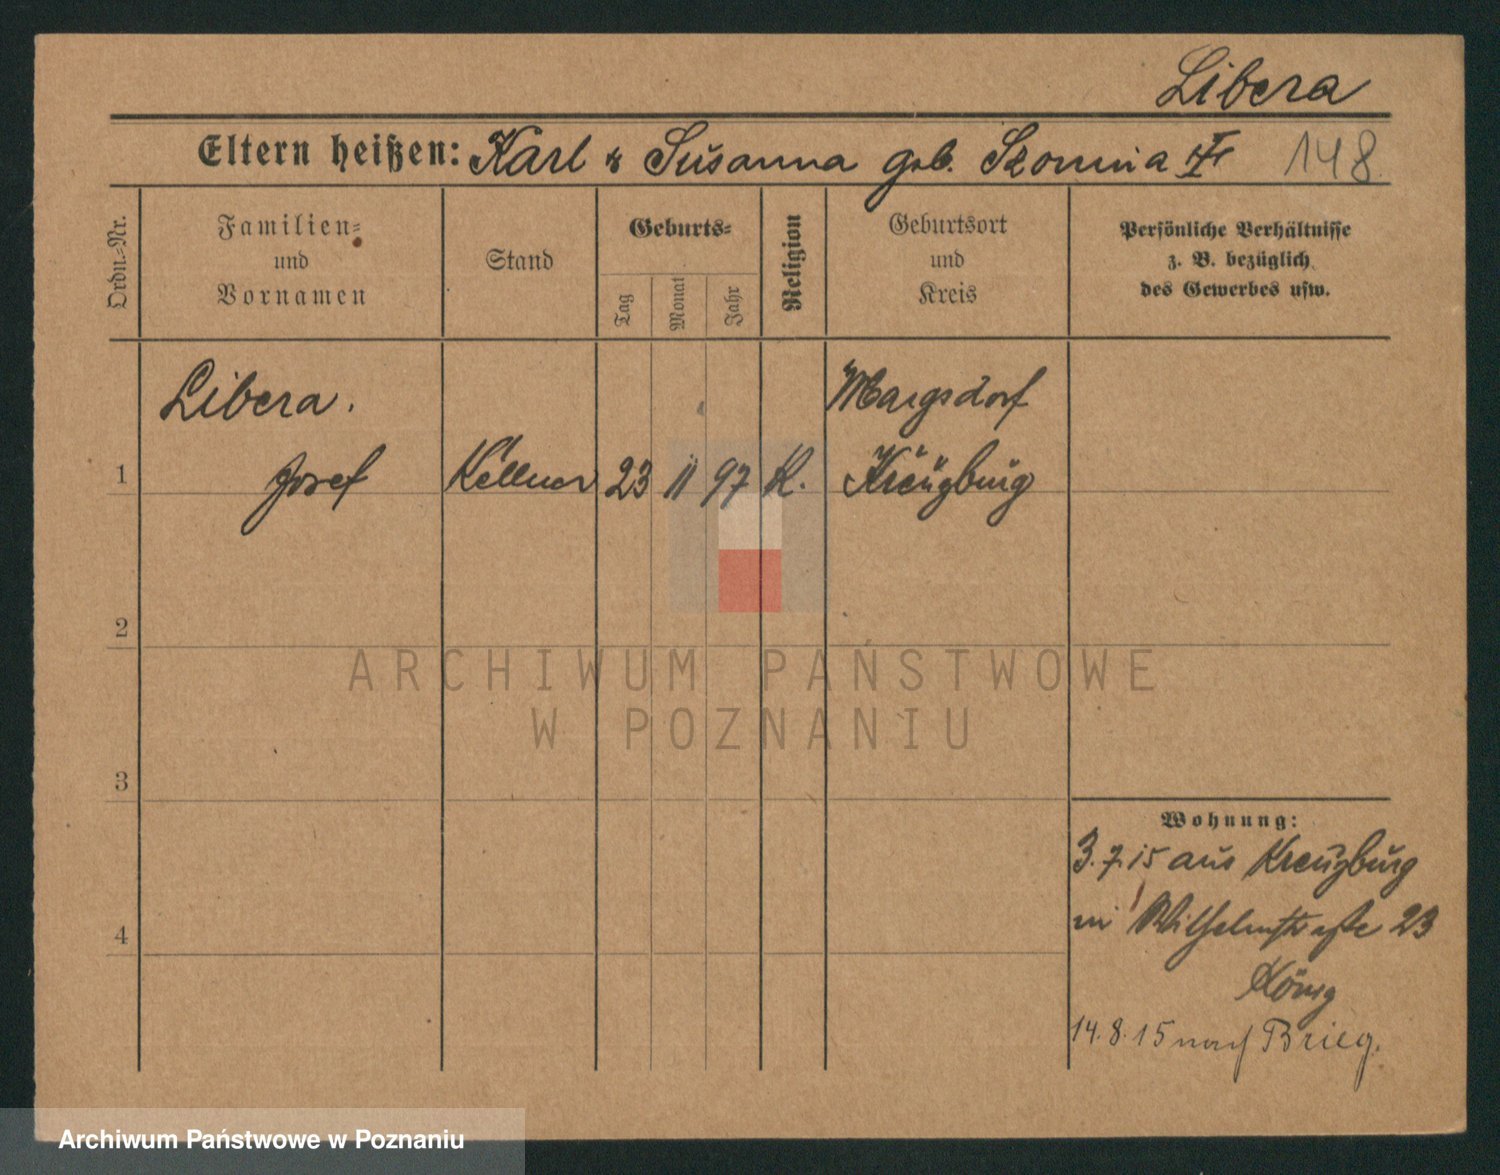 Libera
Eltern heißen: Karl u Susanna geb. 148
Ordn.-Nr.
Familien-
und
Vornamen
Stand
Geburts-
Tag
Monat
Jahr
Religion
Geburtsort
und
Kreis
Persönliche Verhältnisse
z. B. bezüglich
des Gewerbes usw.
Libera. Margsdorf
1 Josef Kellner 23 11 97 K. Kreuzburg
2
ARCHIWUM PAŃSTWOWE
W POZNANIU
3
Wohnung:
3.7.15 aus Kreuzburg
4 in Wilhelmstraße 23
König
14.8.15 nach Brieg.
Archiwum Państwowe w Poznaniu